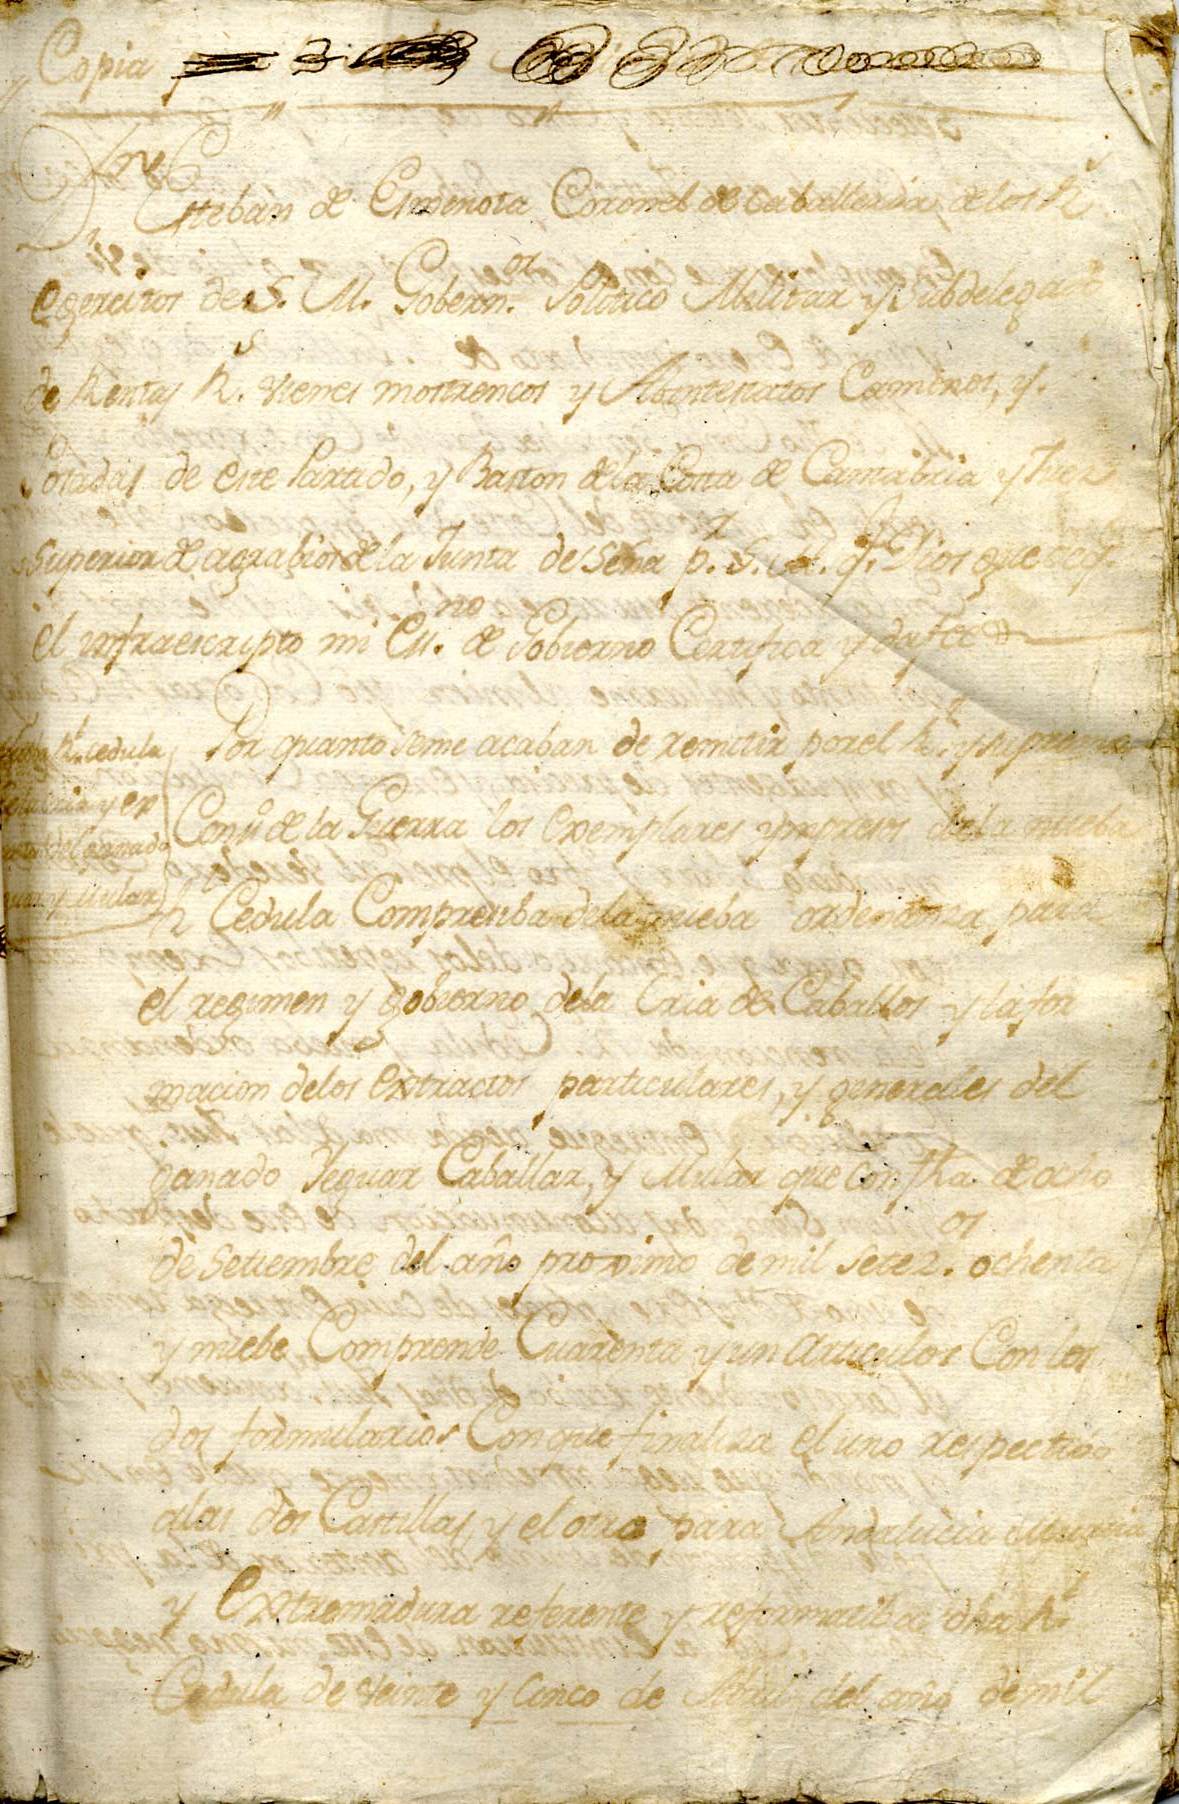 Copia
Dn
Esteban de Espinosa Coronel de caballeria de los Rs
egercitos de S. M. Gobern.or Politico Militar y Subdelegado
de Rentas Rs. vienes mostrencos y Abintestatos Caminos, y
Posadas de este Partido, y Baston de la Costa de Cantabria y Juez
Superior de agrabios de la Junta de Sena p.r S. M. q.e Dios gue de q.e
el infraescripto mi Es.no de Gobierno Certifica y da fee
Por quanto seme acaban de remitir por el R.l y Supremo
Consº de la Guerra los exemplares ympresos de la nueba
Rl Cedula Comprensiba de la nueba ordenanza para
Rl cedula
y ex
del ganado
y Mular
el regimen y gobierno dela Cria de Caballos y la for
macion delos extractos particulares, y generales del
ganado Yeguar Caballar, y Mular que con fha. de ocho
de Setiembre del año proximo de mil setez.os ochenta
y nuebe Comprende Cuarenta y un articulos Con los
dos formularios Con que finaliza el uno respectibo
alas dos Castillas, y el otro para Andalucia Murcia
y Extremadura referente y reformatiba dha Rl
Cedula de veinte y Cinco de Abril del año de mil